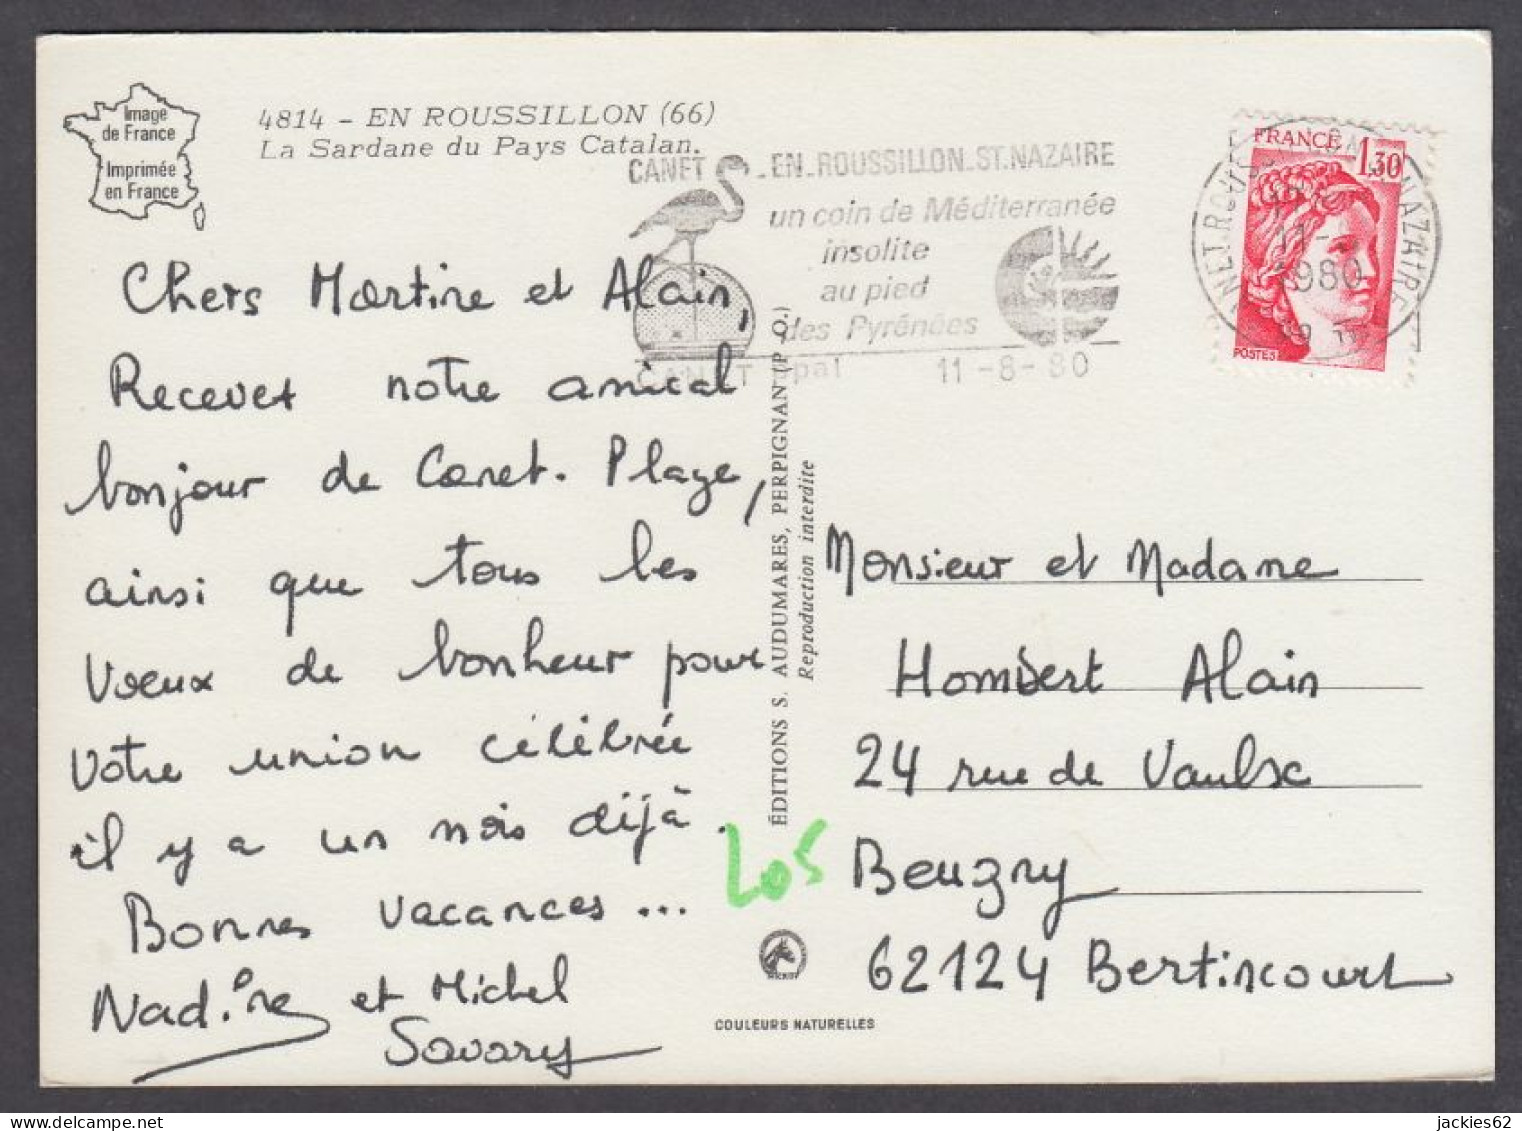 Image
de France
Imprimée
en France
4814 - EN ROUSSILLON (66)
La Sardane du Pays Catalan.
CANET - EN - ROUSSILLON - ST. NAZAIRE
un coin de Méditerranée
insolite
au pied
des Pyrénées
CANET ppal 11-8-80
FRANCE
1,30
POSTES
11-8
1980
Chers Martine et Alain,
Recevez notre amical
bonjour de Canet. Plage,
ainsi que tous les
voeux de bonheur pour
votre union célébrée
il y a un mois déjà.
Bonnes vacances...
Nadine et Michel
Savary
ÉDITIONS S. AUDUMARES, PERPIGNAN (P. O.)
Reproduction interdite
Monsieur et Madame
Hombert Alain
24 rue de Vaulx
Beugny
62124 Bertincourt
LOS
COULEURS NATURELLES
jackies62